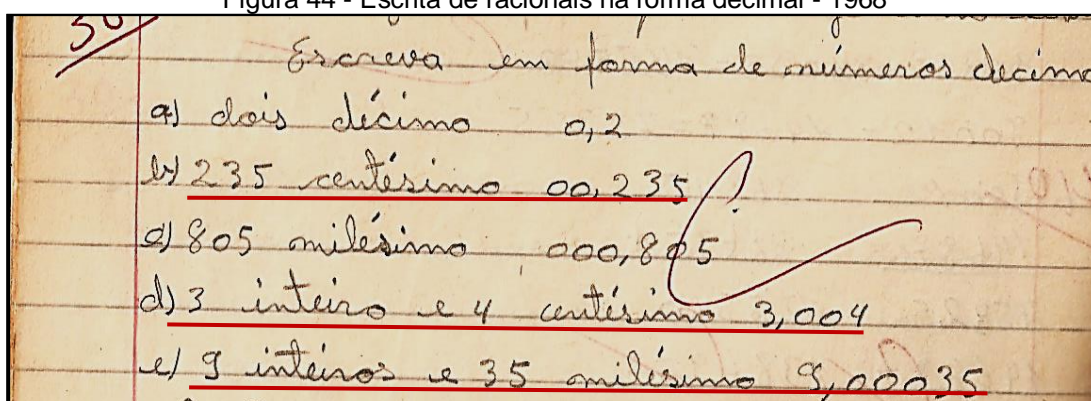 Figura 44 - Escrita de racionais na forma decimal - 1968
50
Escreva em forma de números decima
a) dois décimo 0,2
b) 235 centésimo 00,235
c) 805 milésimo 000,805
d) 3 inteiro e 4 centésimo 3,004
e) 9 inteiros e 35 milésimo 9,00035